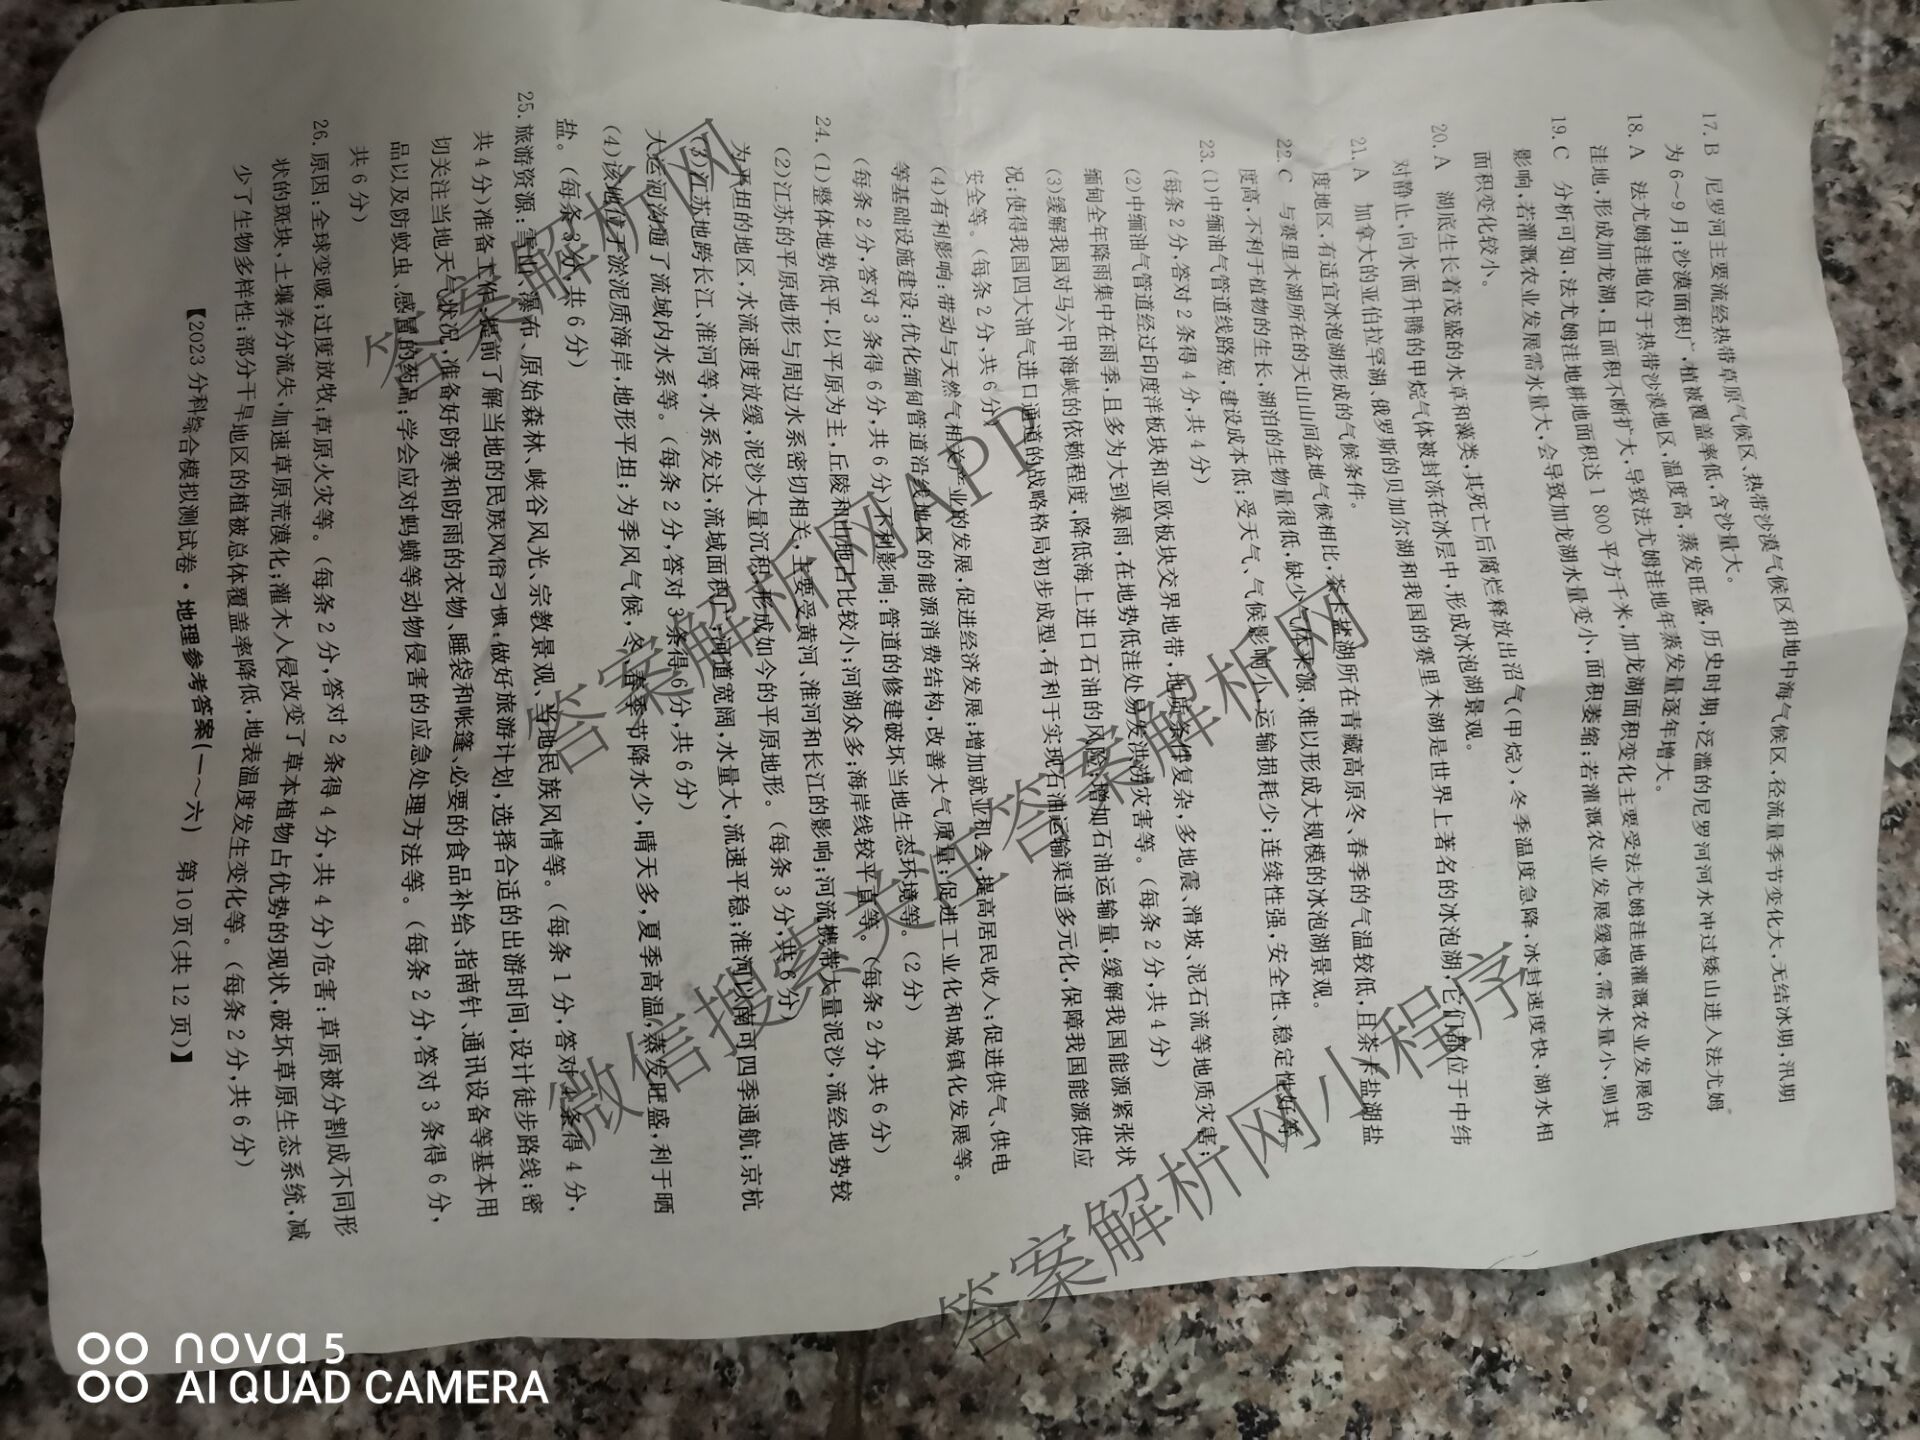 17. B 尼罗河主要流经热带草原气候区、热带沙漠气候区和地中海气候区,径流量季节变化大,无结冰期,汛期
为6~9月;沙漠面积广,植被覆盖率低,含沙量大。
18. A 法尤姆洼地位于热带沙漠地区,温度高,蒸发旺盛,历史时期,泛滥的尼罗河河水冲过矮山进入法尤姆
洼地,形成加龙湖,且面积不断扩大,导致法尤姆洼地年蒸发量逐年增大。
19. C 分析可知,法尤姆洼地耕地面积达1 800平方千米,加龙湖面积变化主要受法尤姆洼地灌溉农业发展的
影响,若灌溉农业发展需水量大,会导致加龙湖水量变小,面积萎缩;若灌溉农业发展缓慢,需水量小,则其
面积变化较小。
20. A 湖底生长着茂盛的水草和藻类,其死亡后腐烂释放出沼气(甲烷),冬季温度急降,冰封速度快,湖水相
对静止,向水面升腾的甲烷气体被封冻在冰层中,形成冰泡湖景观。
21. A 加拿大的亚伯拉罕湖、俄罗斯的贝加尔湖和我国的赛里木湖是世界上著名的冰泡湖,它们都位于中纬
度地区,有适宜冰泡湖形成的气候条件。
22. C 与赛里木湖所在的天山山间盆地气候相比,茶卡盐湖所在青藏高原冬、春季的气温较低,且茶卡盐湖盐
度高,不利于植物的生长,湖泊的生物量很低,缺少气体来源,难以形成大规模的冰泡湖景观。
23. (1)中缅油气管道线路短,建设成本低;受天气、气候影响小,运输损耗少;连续性强,安全性、稳定性好等。
(每条2分,答对2条得4分,共4分)
(2)中缅油气管道经过印度洋板块和亚欧板块交界地带,地质条件复杂,多地震、滑坡、泥石流等地质灾害;
缅甸全年降雨集中在雨季,且多为大到暴雨,在地势低洼处易发洪涝灾害等。(每条2分,共4分)
(3)缓解我国对马六甲海峡的依赖程度,降低海上进口石油的风险;增加石油运输量,缓解我国能源紧张状
况;使得我国四大油气进口通道的战略格局初步成型,有利于实现石油运输渠道多元化,保障我国能源供应
安全等。(每条2分,共6分)
(4)有利影响:带动与天然气相关产业的发展,促进经济发展;增加就业机会,提高居民收入;促进供气、供电
等基础设施建设;优化缅甸管道沿线地区的能源消费结构,改善大气质量;促进工业化和城镇化发展等。
(每条2分,答对3条得6分,共6分)不利影响:管道的修建破坏当地生态环境等。(2分)
24. (1)整体地势低平,以平原为主,丘陵和山地占比较小;河湖众多;海岸线较平直等。(每条2分,共6分)
(2)江苏的平原地形与周边水系密切相关,主要受黄河、淮河和长江的影响;河流携带大量泥沙,流经地势较
为平坦的地区,水流速度放缓,泥沙大量沉积,形成如今的平原地形。(每条3分,共6分)
(3)江苏地跨长江、淮河等,水系发达,流域面积广;河道宽阔,水量大,流速平稳;淮河以南可四季通航;京杭
大运河沟通了流域内水系等。(每条2分,答对3条得6分,共6分)
(4)该地位于淤泥质海岸,地形平坦;为季风气候,冬、春季节降水少,晴天多,夏季高温,蒸发旺盛,利于晒
盐。(每条3分,共6分)
25. 旅游资源:雪山、瀑布、原始森林、峡谷风光、宗教景观、当地民族风情等。(每条1分,答对4条得4分,
共4分)准备工作:提前了解当地的民族风俗习惯,做好旅游计划,选择合适的出游时间,设计徒步路线;密
切关注当地天气状况,准备好防寒和防雨的衣物、睡袋和帐篷、必要的食品补给、指南针、通讯设备等基本用
品以及防蚊虫、感冒的药品;学会应对蚂蟥等动物侵害的应急处理方法等。(每条2分,答对3条得6分,
共6分)
26. 原因:全球变暖;过度放牧;草原火灾等。(每条2分,答对2条得4分,共4分)危害:草原被分割成不同形
状的斑块,土壤养分流失,加速草原荒漠化;灌木入侵改变了草本植物占优势的现状,破坏草原生态系统,减
少了生物多样性;部分干旱地区的植被总体覆盖率降低,地表温度发生变化等。(每条2分,共6分)
【2023分科综合模拟测试卷·地理参考答案(一~六) 第10页(共12页)】
答案解析网
答案解析网APP
微信搜索关注答案解析网
答案解析网小程序
nova 5
AI QUAD CAMERA